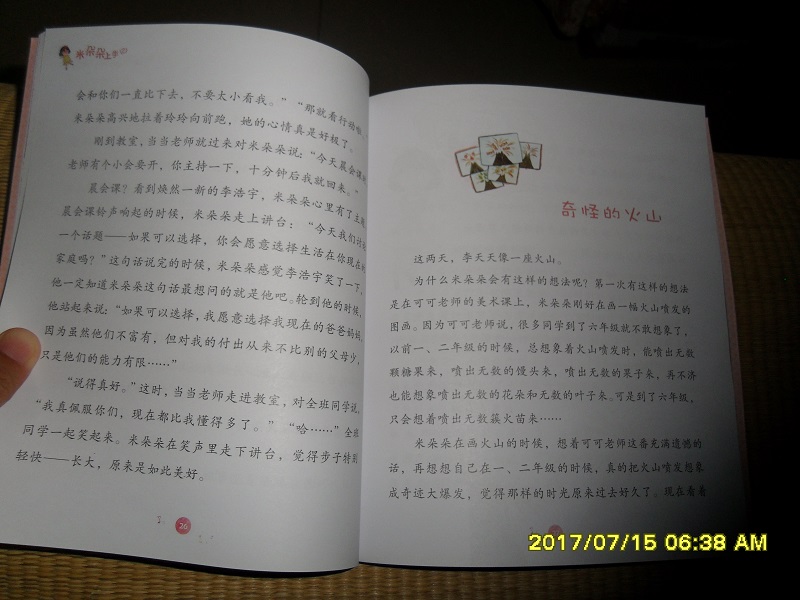 米朵朵上学
会和你们一直比下去，不要太小看我。”“那就看行动啦
米朵朵高兴地拉着玲玲向前跑，她的心情真是好极了。
刚到教室，当当老师就过来对米朵朵说：“今天晨会课
老师有个小会要开，你主持一下，十分钟后我就回来。”
晨会课？看到焕然一新的李浩宇，米朵朵心里有了主
晨会课铃声响起的时候，米朵朵走上讲台：“今天我们讨
一个话题——如果可以选择，你会愿意选择生活在你现在的
家庭吗？”这句话说完的时候，米朵朵感觉李浩宇笑了一下，
他一定知道米朵朵这句话最想问的就是他吧。轮到他的时候，
他站起来说：“如果可以选择，我愿意选择我现在的爸爸妈妈，
因为虽然他们不富有，但对我的付出从来不比别的父母少，
只是他们的能力有限……”
“说得真好。”这时，当当老师走进教室，对全班同学说，
“我真佩服你们，现在都比我懂得多了。”“哈……”全班
同学一起笑起来。米朵朵在笑声里走下讲台，觉得步子特别
轻快——长大，原来是如此美好。
26
奇怪的火山
这两天，李天天像一座火山。
为什么米朵朵会有这样的想法呢？第一次有这样的想法
是在可可老师的美术课上，米朵朵刚好在画一幅火山喷发的
图画。因为可可老师说，很多同学到了六年级就不敢想象了，
以前一、二年级的时候，总想象着火山喷发时，能喷出无数
颗糖果来，喷出无数的馒头来，喷出无数的果子来，再不济
也能想象喷出无数的花朵和无数的叶子来。可是到了六年级，
只会想着喷出无数簇火苗来……
米朵朵在画火山的时候，想着可可老师这番充满遗憾的
话，再想想自己在一、二年级的时候，真的把火山喷发想象
成奇迹大爆发，觉得那样的时光原来过去好久了。现在看着
2017/07/15 06:38 AM